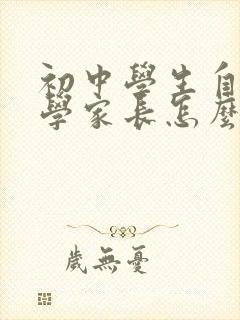 初中學生自
學家長怎麼
歲無憂